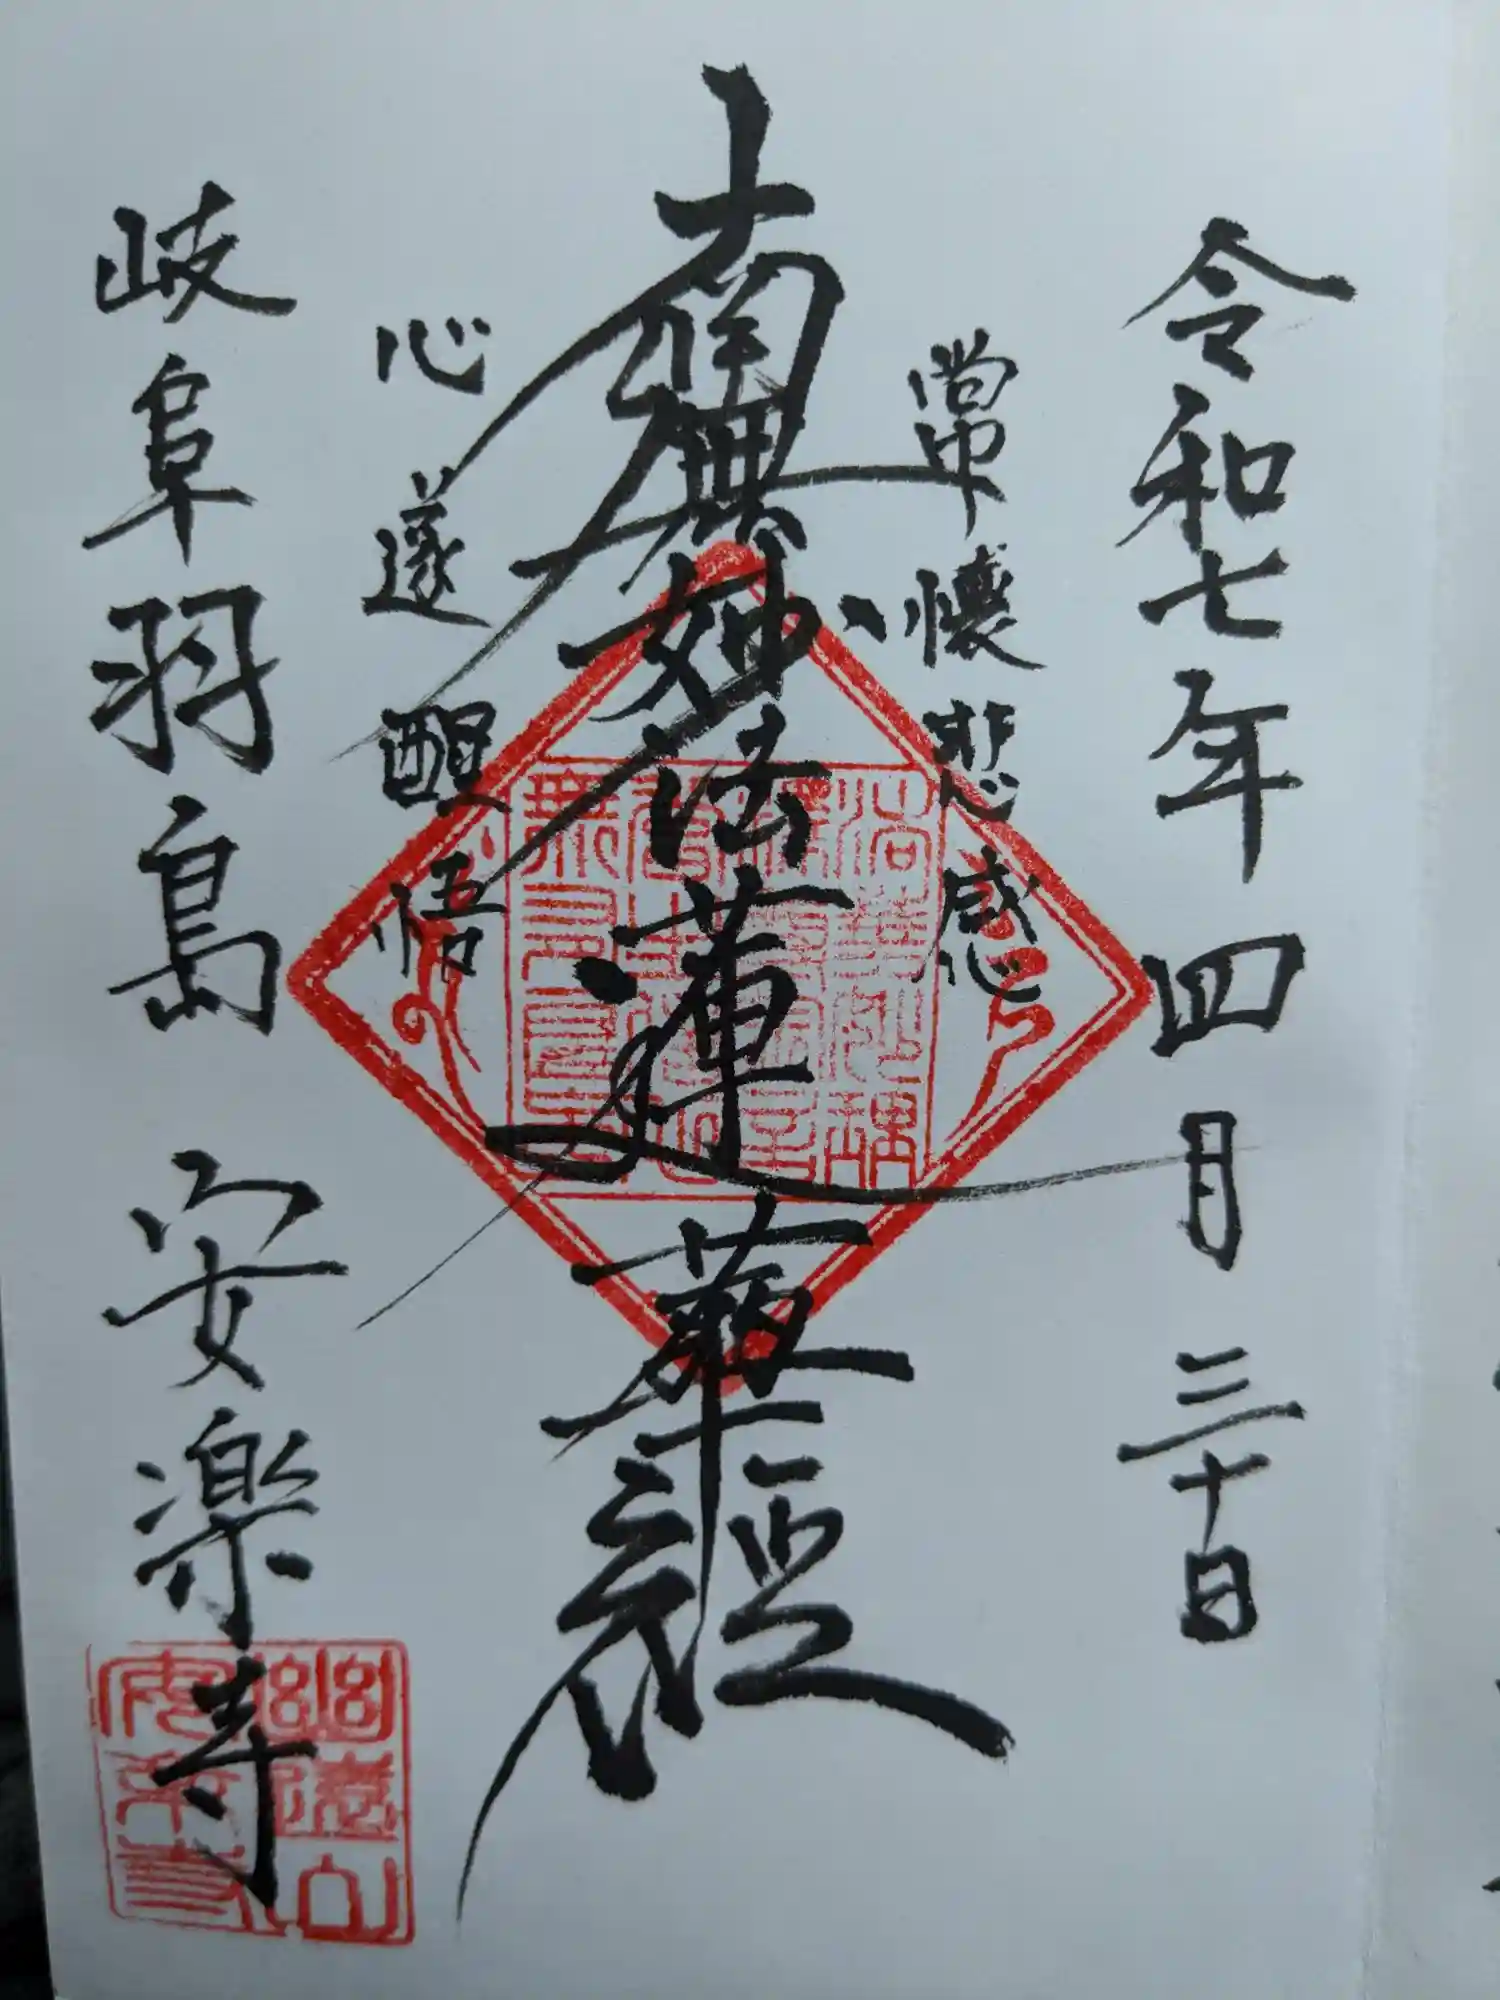 令和七年四月三十日
常懐悲感
南無妙法蓮華経
心遂醒悟
岐阜羽島 安楽寺